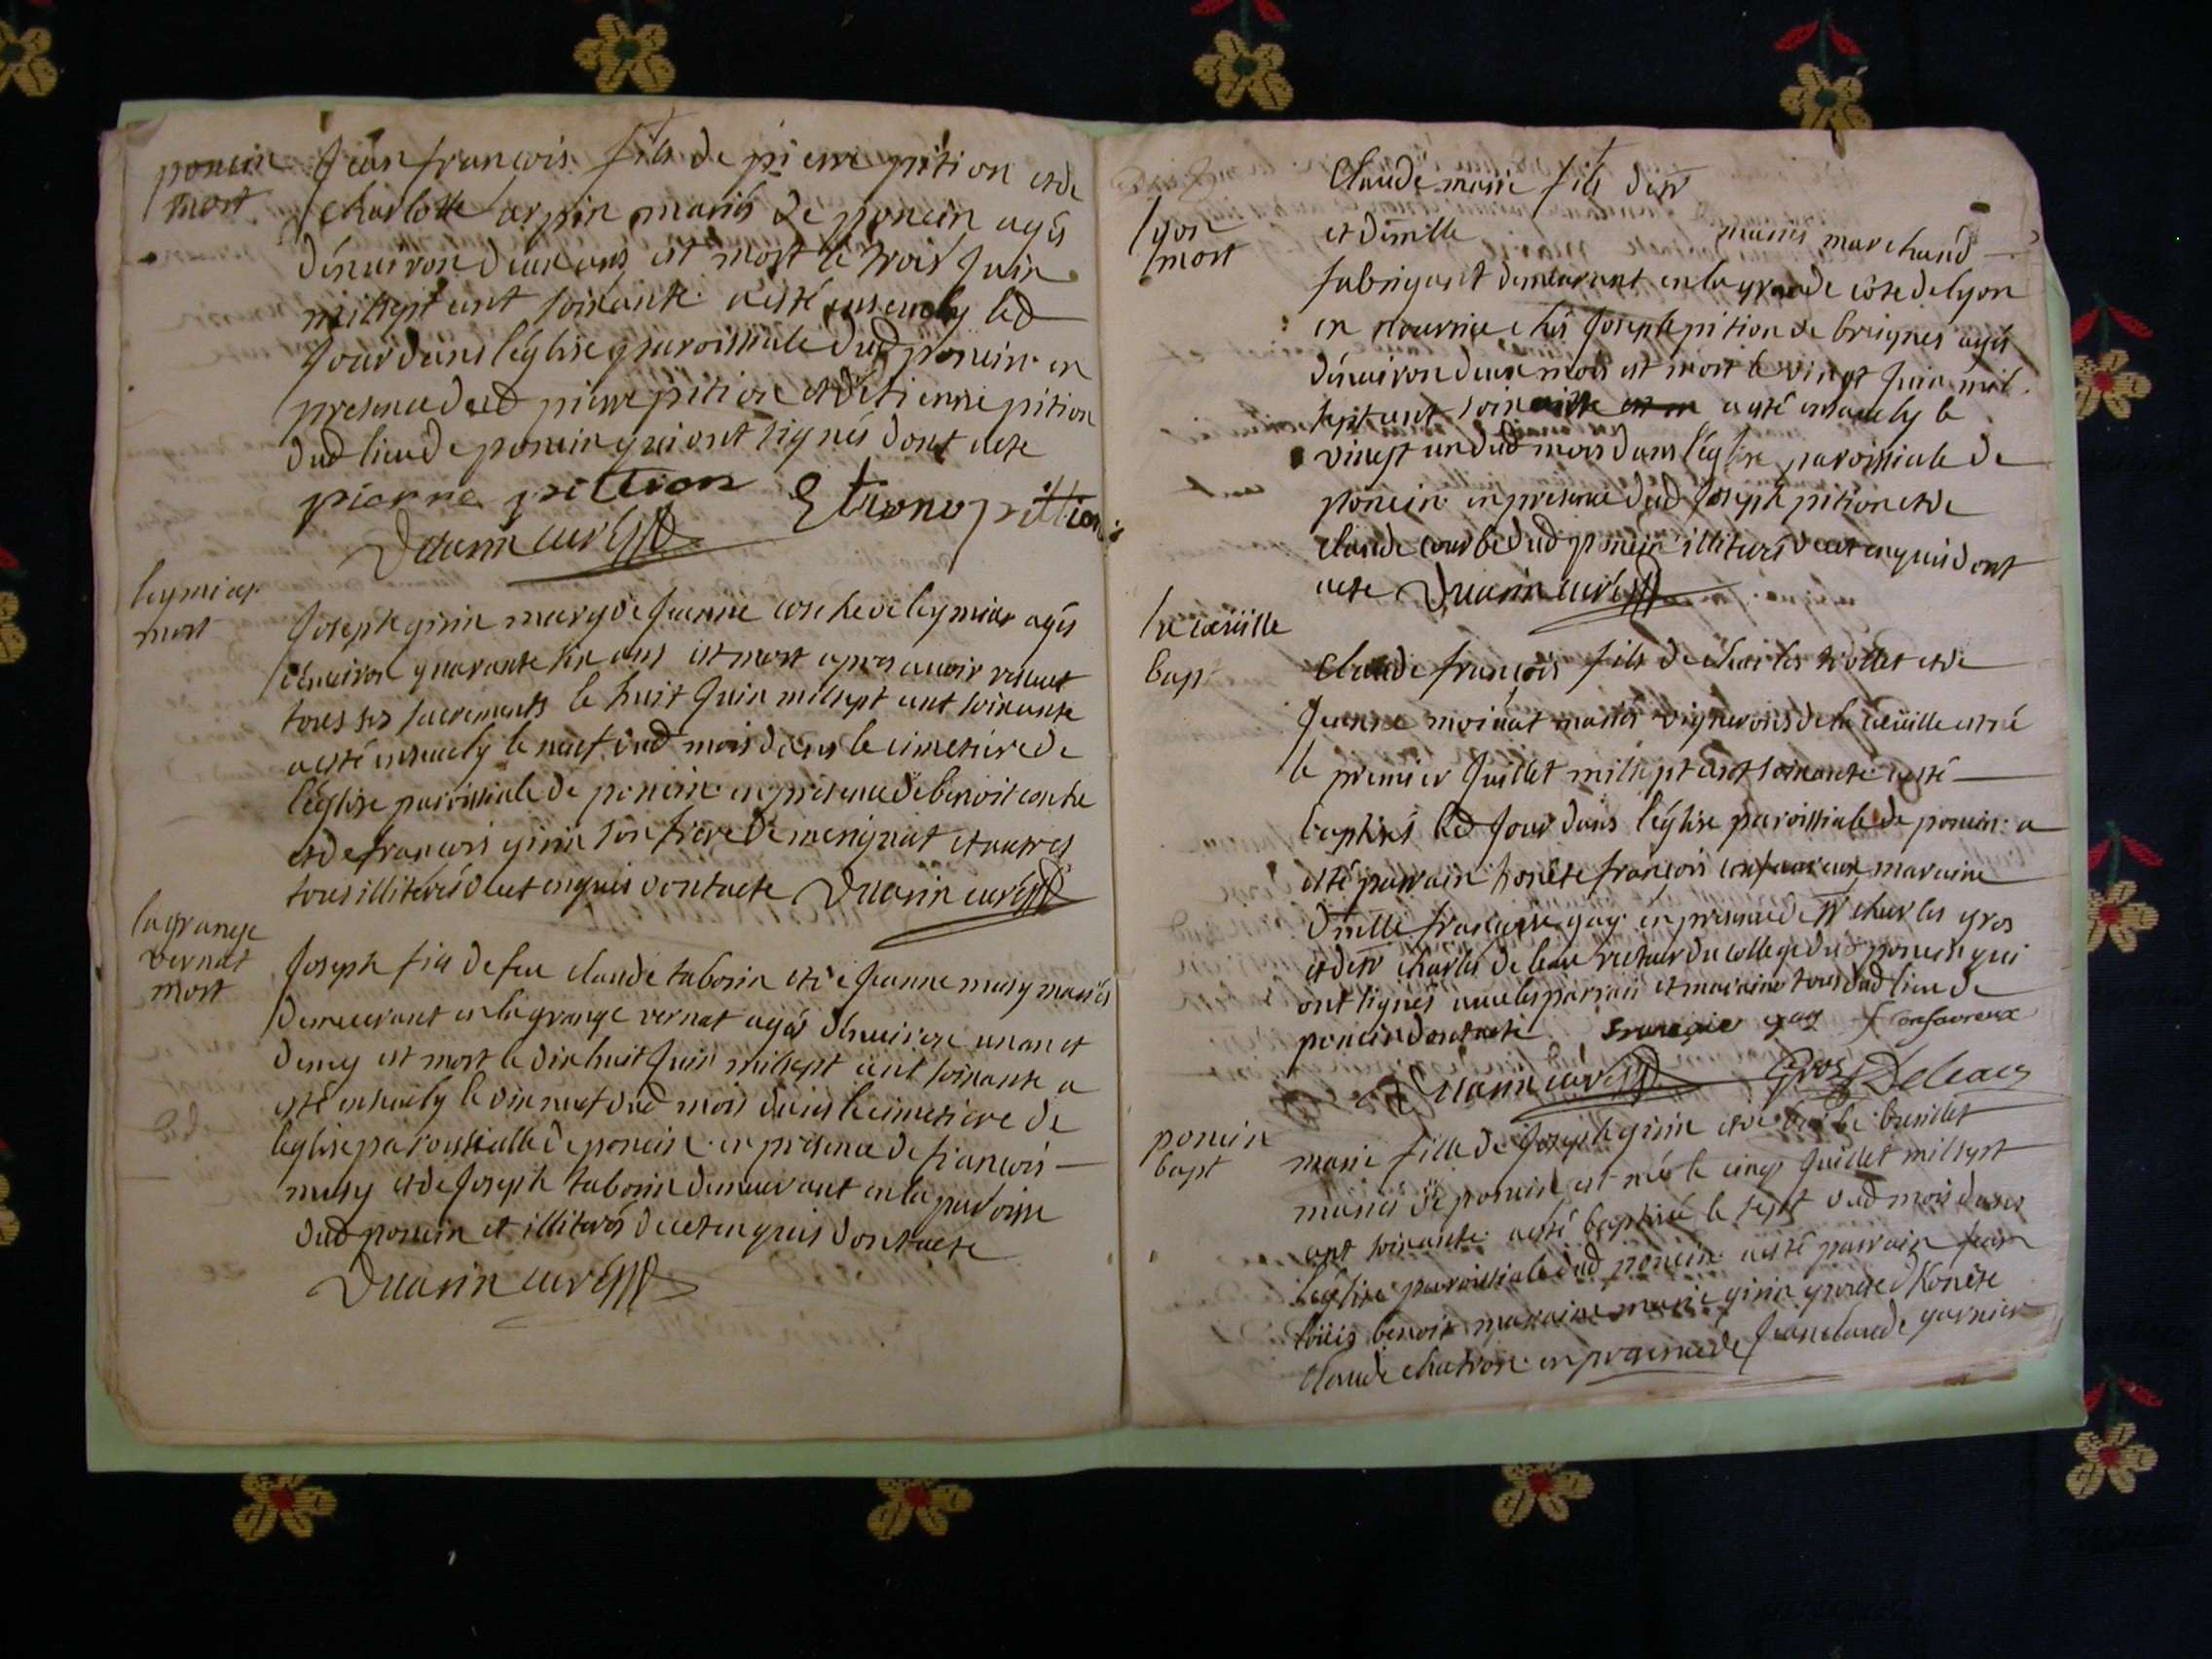 poncin
mort
Jean françois fils de pierre pition et de
charlotte arpin mariés de poncin agés
dénuiron deux ans est mort le trois Juin
mil sept cent soixante a esté enseuely led
Jour dans léglise paroissiale dud poncin en
presence dud pierre pition et détienne pition
dud lieu de poncin qui ont signés dont acte
pierre pittion Etienne pittion
Duarin curé
leymiar
mort
Joseph girin mary de Jeanne conche de leymiar agés
dénuiron quarante six ans est mort apres auoir receut
tous ses sacrements le huit Juin mil sept cent soixante
a esté enseuely le neuf dud mois dans le cimetiere de
léglise paroissiale de poncin en presence de benoit conche
et de francois girin son frere de merignat et autres
tous illiterés de ce enquis dont acte Duarin curé
la grange
vernat
mort
Joseph fils de feu claude taborin et de Jeanne musy mariés
demeurant en la grange vernat agés dénuiron un an et
demy est mort le dix huit Juin mil sept cent soixante a
esté enseuely le dix neuf dud mois dans le cimetiere de
léglise paroissialle de poncin en presence de francois
musy et de Joseph taborin demeurant en la paroisse
dud poncin et illiterés de ce enquis dont acte
Duarin curé
lyon
mort
Claude marie fils de sr
et demlle mariés marchand
fabriquant demeurant en la grande côte de lyon
en nourrice chés Joseph pition de breignes agés
dénuiron deux mois est mort le vingt Juin mil
sept cent soixante a esté enseuely le
vingt un dud mois dans l'église paroissiale de
poncin en presence dud Joseph pition et de
claude courbe dud poncin illiterés de ce enquis dont
acte Duarin curé
la cœuille
bapt
Claude françois fils de charles triollet et de
Jeanne moinat mariés vignerons de la cœuille est né
le premier Juillet mil sept cent soixante a esté
baptisés led Jour dans léglise paroissiale de poncin a
esté parrain honéte françois confavreux maraine
Dmlle francoise gay en presence de sr charles gros
et de sr charles de leau recteur du college dud poncin qui
ont signés auec les parrain et maraine tous dud lieu de
poncin dont acte francoise gay f confavreux
Duarin curé Gros Deleau
poncin
bapt
marie fille de Joseph girin et de barbe breillet
mariés de poncin est née le cinq Juillet mil sept
cent soixante a esté baptisée le sept dud mois dans
léglise paroissiale dud poncin a esté parrain Jean
loüis benoit maraine marie girin épouse d'honéte
claude chatron en presence de Jean claude garnier